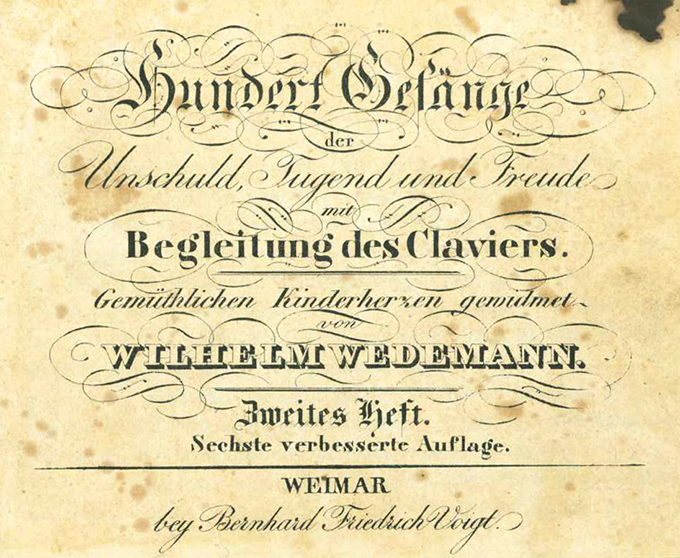 Hundert Gesänge
der
Unschuld, Tugend und Freude
mit
Begleitung des Claviers.
Gemüthlichen Kinderherzen gewidmet
von
WILHELM WEDEMANN.
Zweites Heft.
Sechste verbesserte Auflage.
WEIMAR
bey Bernhard Friedrich Voigt.